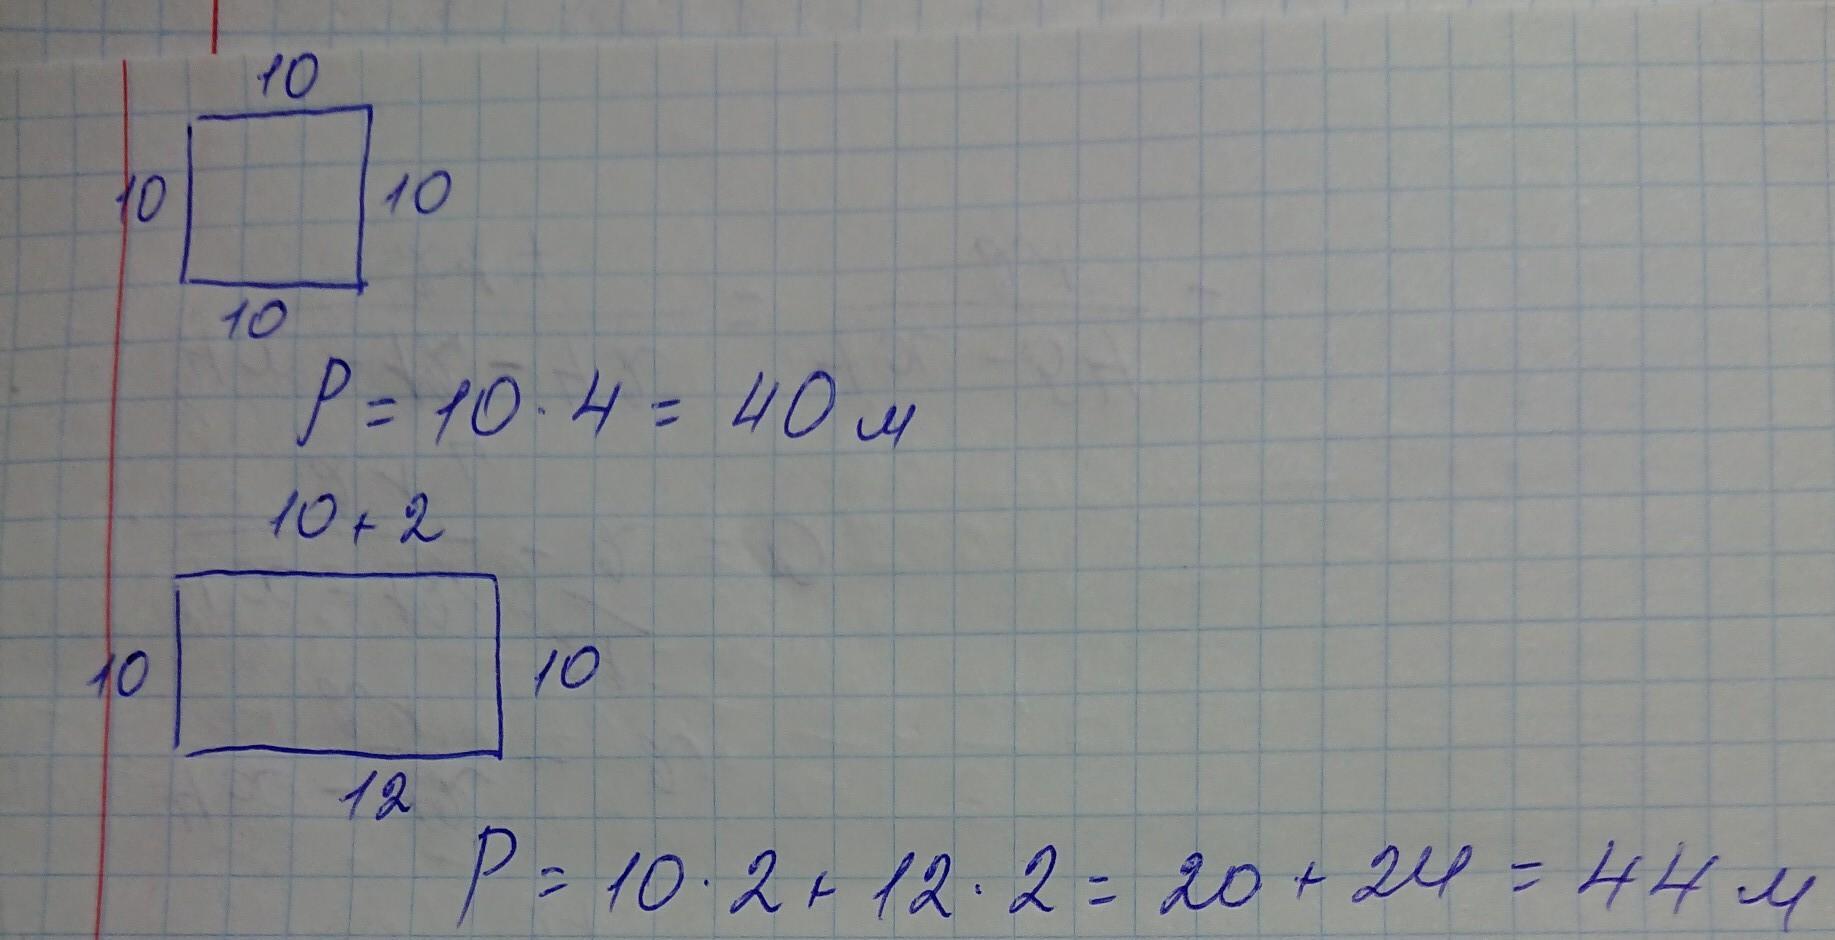 10
10 10
10
P = 10 · 4 = 40 м
10 + 2
10 10
12
P = 10 · 2 + 12 · 2 = 20 + 24 = 44 м